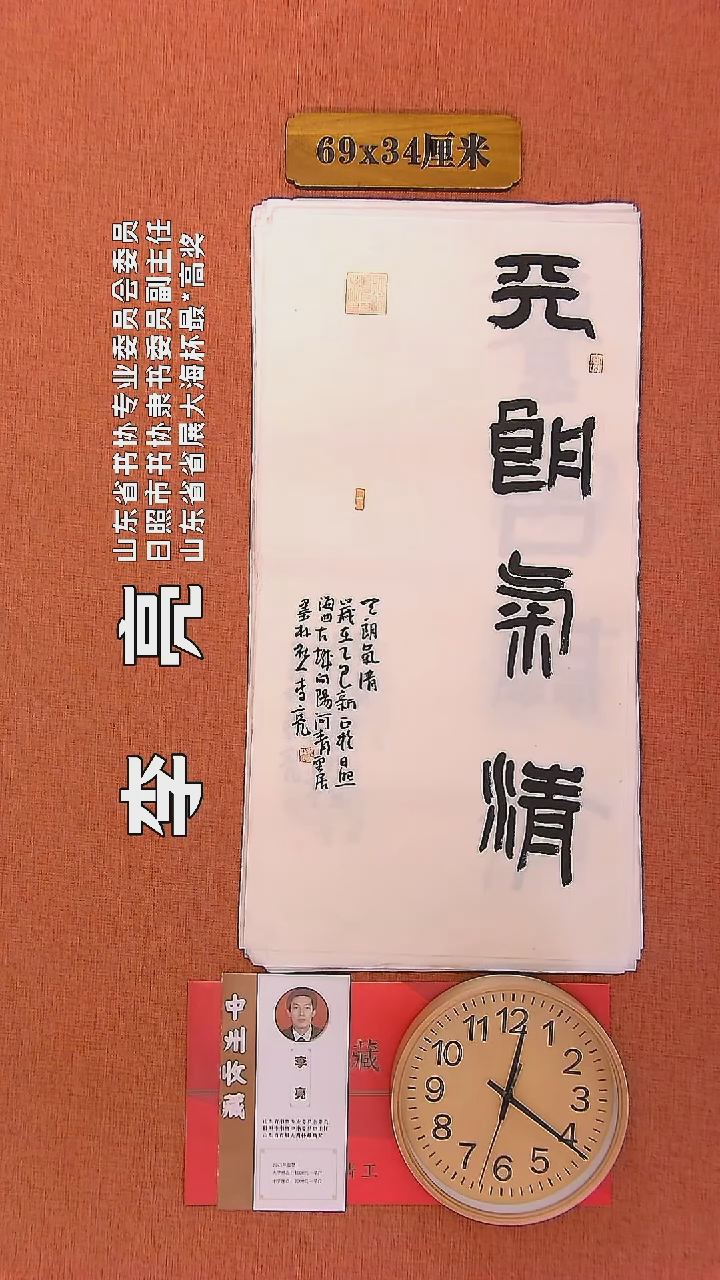 69x34厘米
山东省书协专业委员会委员
日照市书协隶书委员副主任
山东省省展大海杯最*高奖
李 亮
天朗气清
天朗氣清
歲在乙巳新正於日照
海曲古城向陽河青里居
李亮
中州收藏
李亮
藏
12
1
2
3
4
5
6
7
8
9
10
11